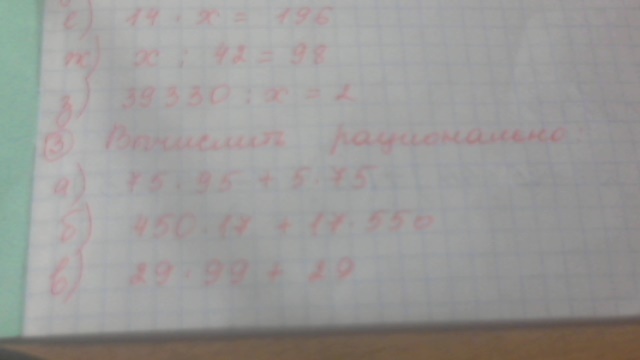 е) 14 · x = 196
ж) x : 42 = 98
з) 39330 : x = 2
③ Вычислить рационально:
а) 75 · 95 + 5 · 75
б) 450 · 17 + 17 · 550
в) 29 · 99 + 29